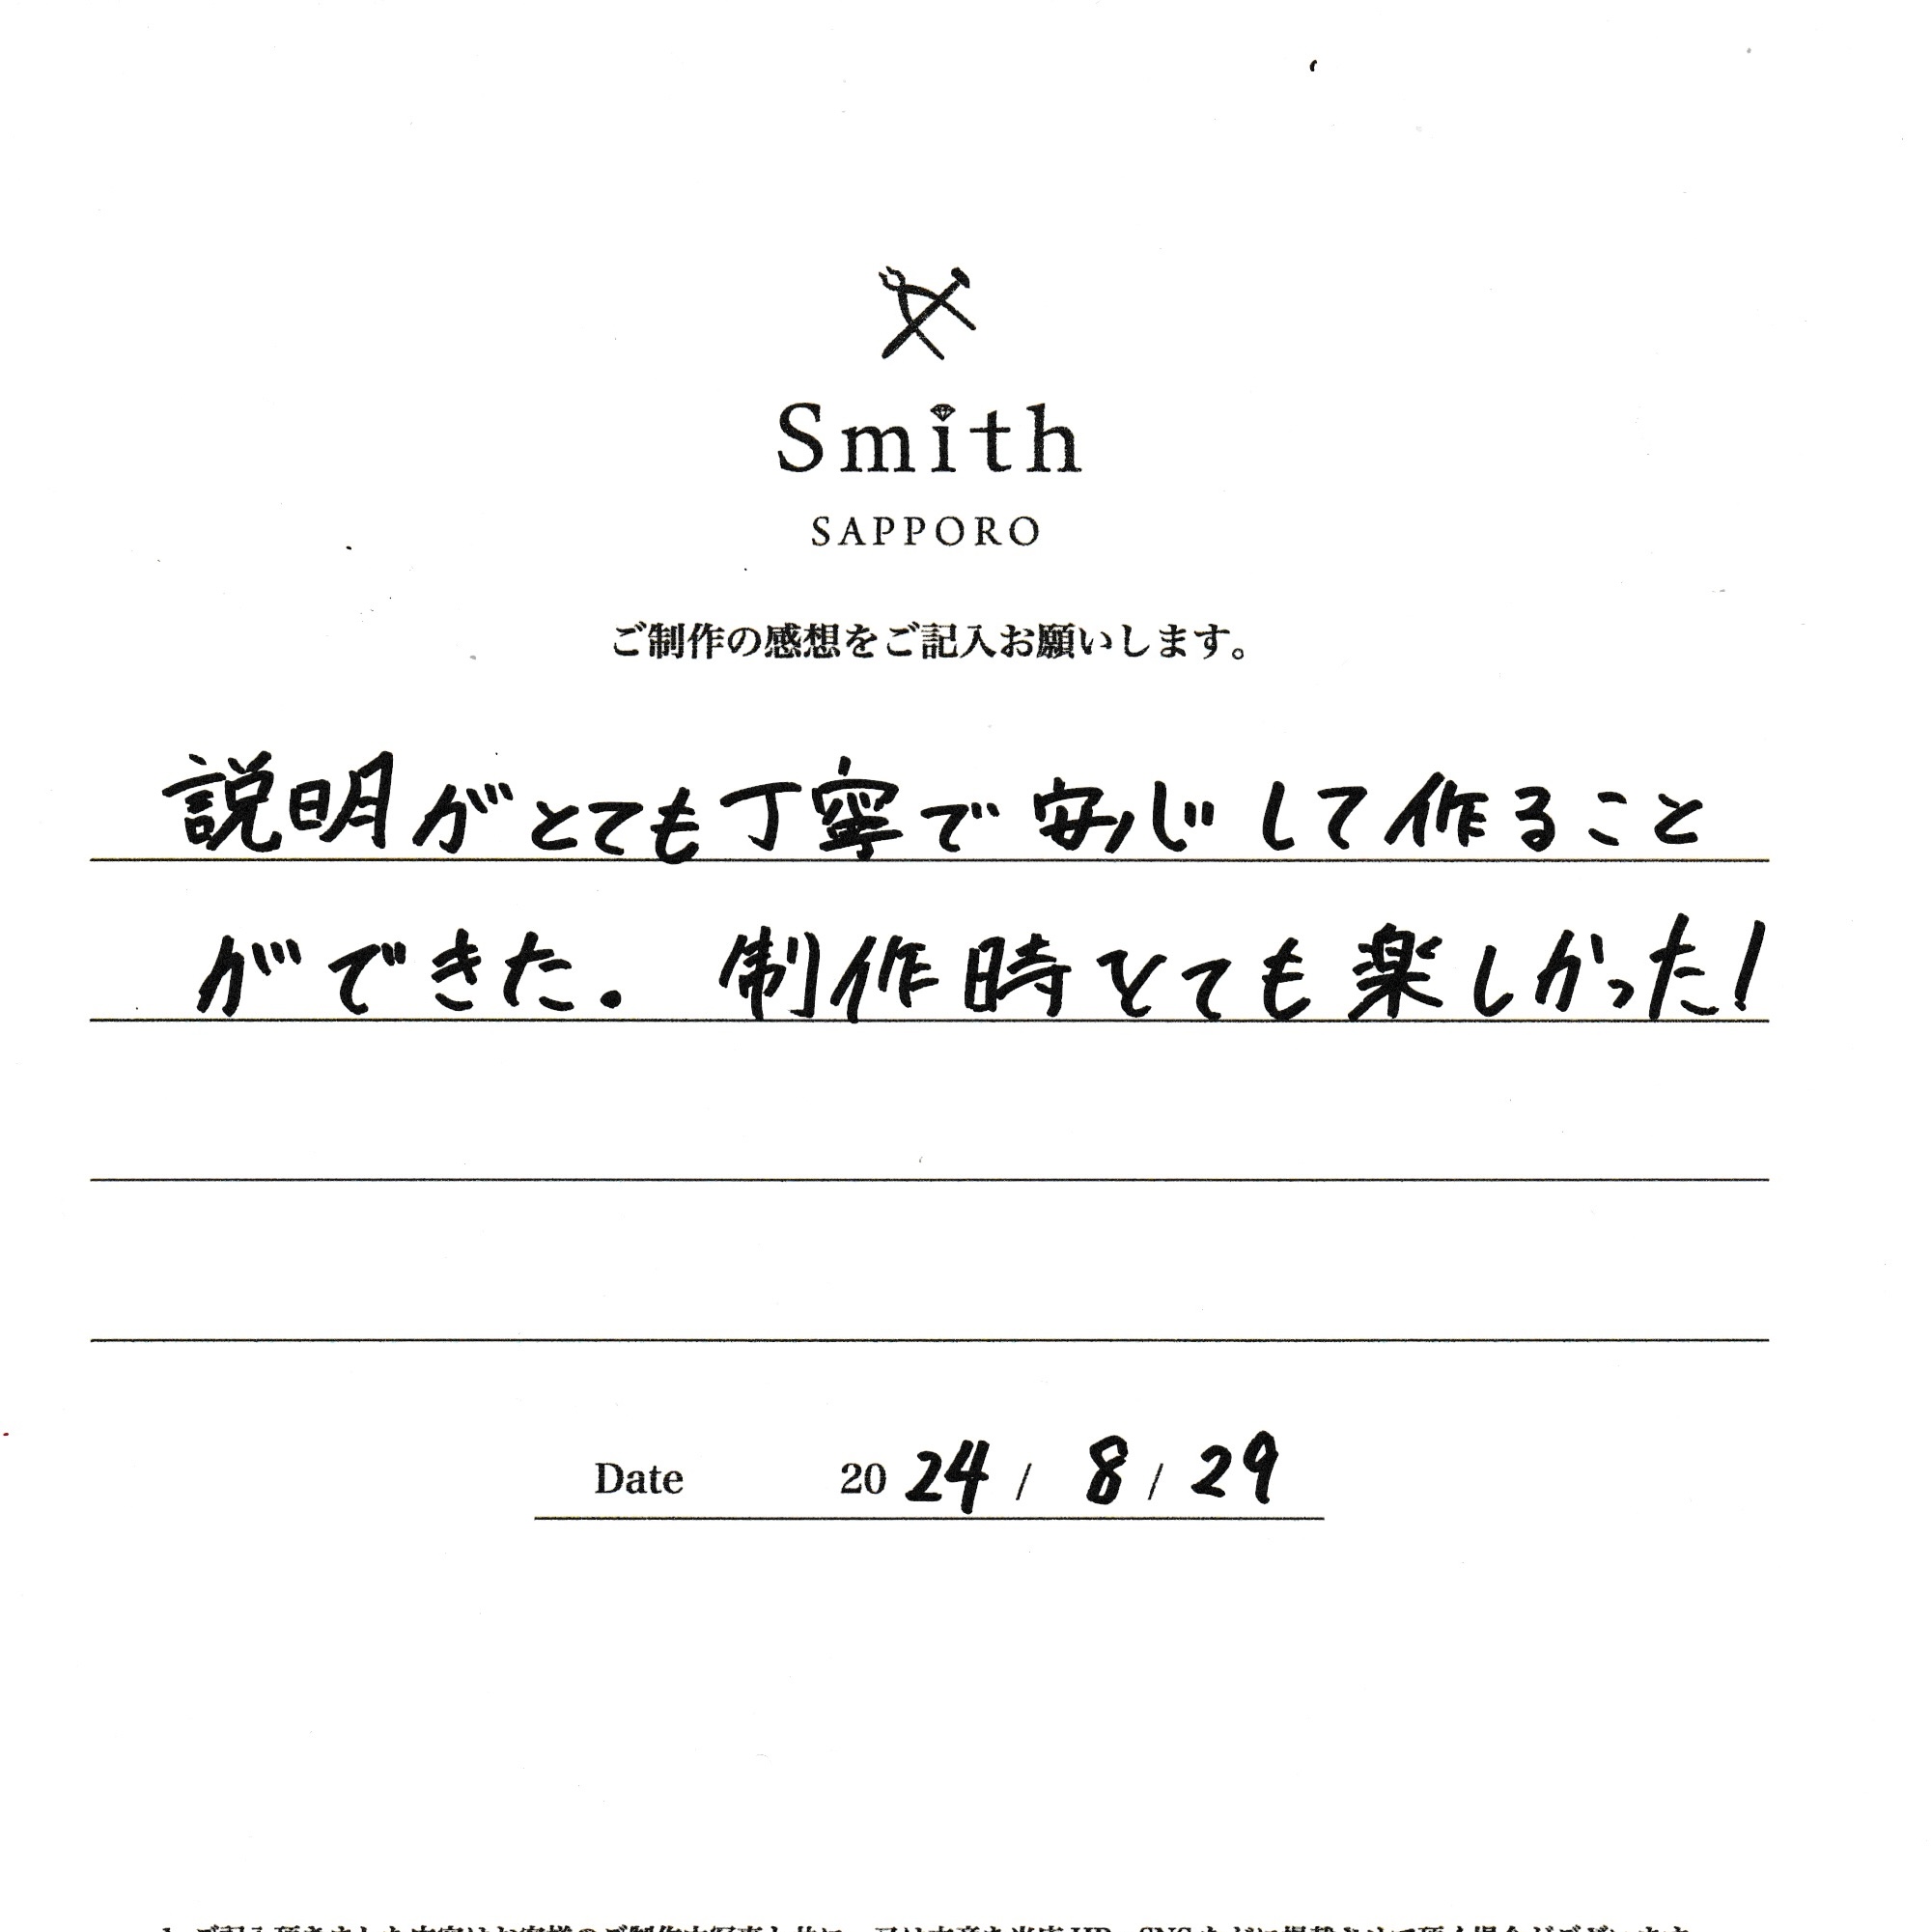 Smith
SAPPORO
ご制作の感想をご記入お願いします。
説明がとても丁寧で安心して作ること
ができた. 制作時とても楽しかった!
Date 2024 / 8 / 29